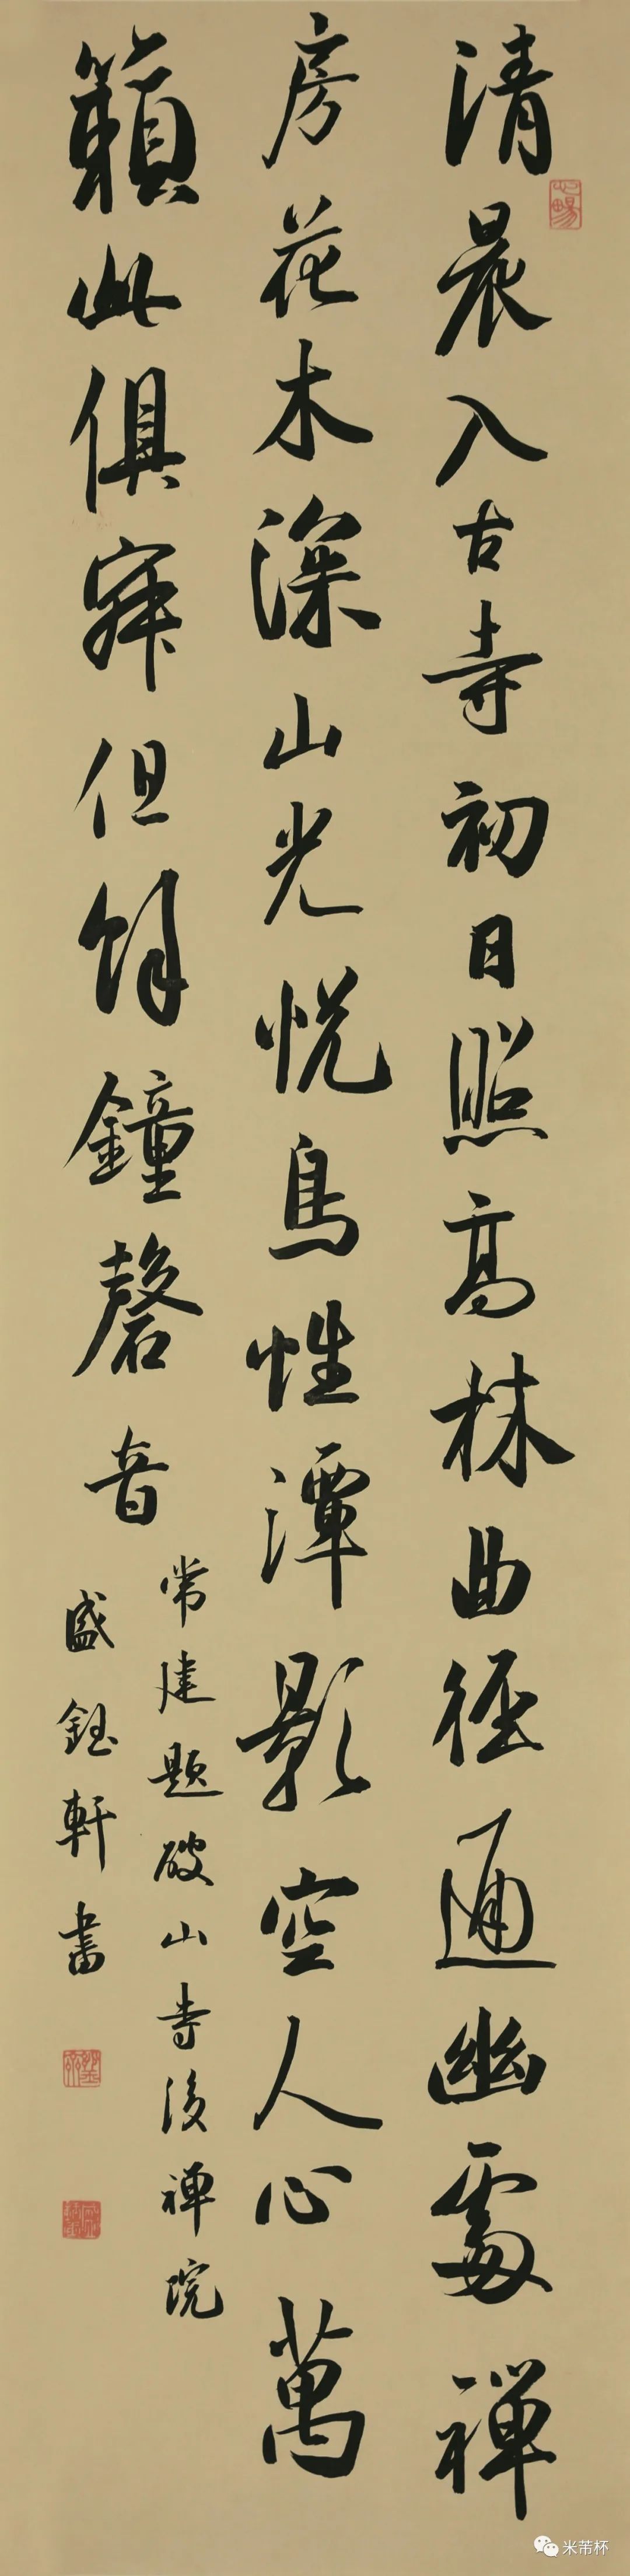 清晨入古寺初日照高林曲径通幽處禅
房花木深山光悦鳥性潭影空人心萬
籟此俱寂但餘鐘磬音
常建題破山寺後禅院
盛鈺軒書
心暢
米芾杯